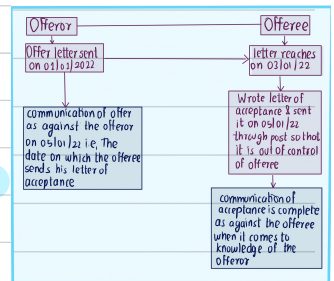 Offeror
Offeree
Offer letter sent
on 01/01/2022
letter reaches
on 03/01/22
communication of offer
as against the offeror
on 05/01/22 i.e, The
date on which the offeree
sends his letter of
acceptance
Wrote letter of
acceptance & sent
it on 05/01/22
through post so that
it is out of control
of offeree
communication of
acceptance is complete
as against the offeree
when it comes to
knowledge of the
offeror